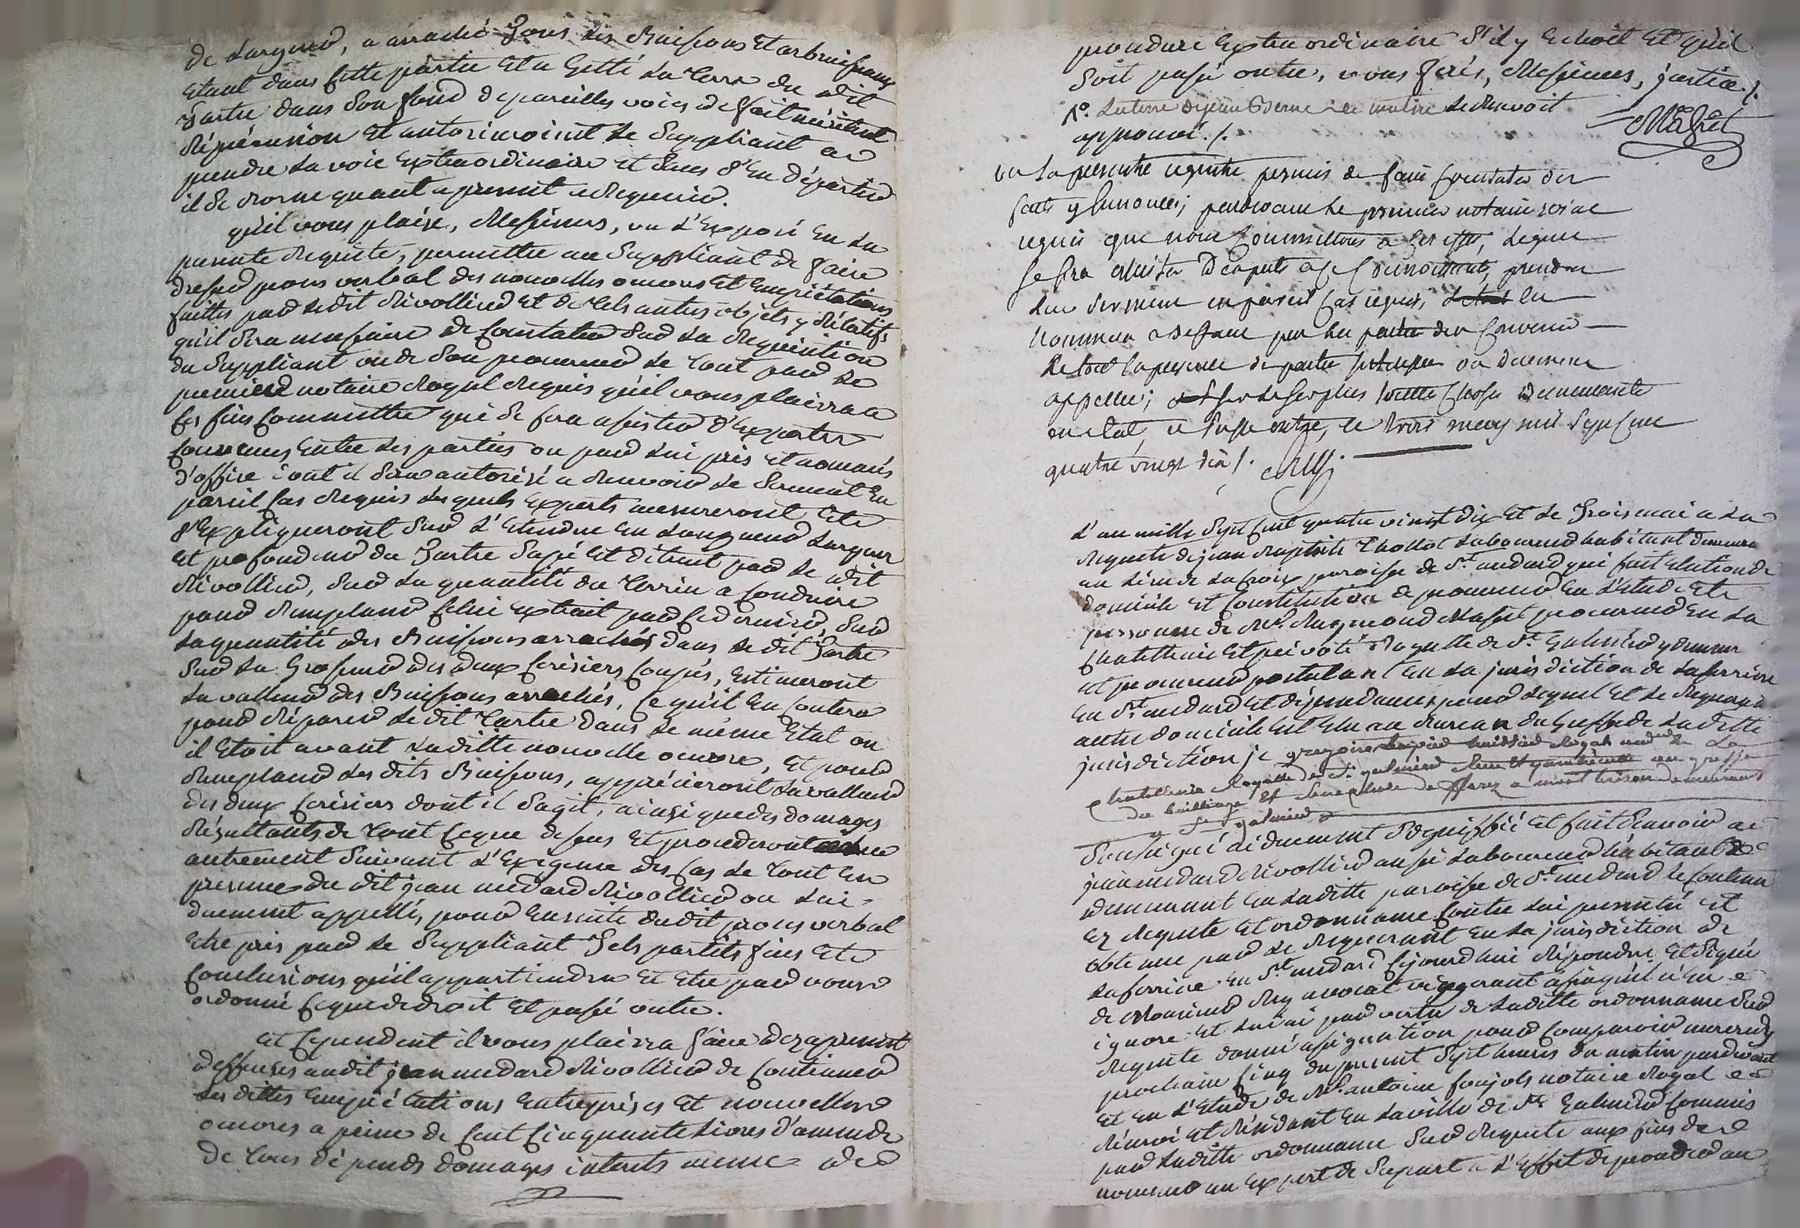 de Largeur, a arraché Tous les Buissons et arbrisseaux
étant dans cette partie et a jetté La Terre du dit
Tertre dans son fond de pareilles voies de fait méritent
répréension et autoriseroient le Suppliant a
prendre La voie Extraordinaire et sans s'En départir
il se borne quant a present a Requerir.
qu'il vous plaise, Messieurs, vu L'Exposé En La
presente Requete, permettre au Suppliant de faire
dresser procès verbal des nouvelles œuvres et Empiétations
faittes par Ledit Rivollier et de tels autres objets y relatifs
qu'il sera necessaire de Constater sur La Requisition
du Suppliant ou de Son procureur Le Tout par Le
premier notaire Royal Requis qu'il vous plaira a
Ces fins Commettre qui Se fera assister d'Experts
Convenus Entre Les parties ou par Lui pris et nommés
d'office dont il Sera autorisé a Recevoir Le Serment En
pareil Cas Requis Lesquels Experts mesureront Et
s'Expliqueront Sur L'Etendue En Longueur Largeur
et profondeur du Tertre Sapé et détruit par Le dit
Rivollier, Sur La quantité du Terrin a Conduire
pour Remplacer Celui Extrait par Ce dernier, Sur
La quantité des Buissons arrachés dans Le dit Tertre
Sur La Grosseur des deux Cerisiers Coupés, Estimeront
La valleur des Buissons arrachés, Ce qu'il En Coutera
pour Réparer Le dit Tertre dans Le même Etat ou
il Etoit avant Laditte nouvelle œuvre, et pour
Remplacer Les dits Buissons, apprécieront La valleur
des deux Cerisiers dont il S'agit, ainsi que des domages
Résultants de Tout Ce que dessus et procederont
autrement Suivant L'Exigence des Cas Le Tout En
presence du dit jean medard Rivollier ou Lui
duement appellé, pour Ensuite dudit procès verbal
Etre pris par Le Suppliant Tels partits fins Et
Conclusions qu'il appartiendra et Etre par vous
ordonné Ce que de droit et passé outre.
et Cependent il vous plaira faire des apresent
deffenses audit jean medard Rivollier de Continuer
Les dittes Empiétations Entreprises et nouvelles
œuvres a peine de Cent Cinquante Livres d'amende
de Tous dépends domages interets meme de
procedure Extraordinaire S'il y Echoit Et qu'il
Soit passé outre, vous ferés, Messieurs, justice./.
approuvé./.
Masset
vu La presente requete permis de faire Constater des
faits y Enoncés, pardevant Le premier notaire royal
requis que nous Commettons a Cet effet, Lequel
Se fera assister d'Experts a Ce Connoissants, prendra
Leur Serment en pareil Cas requis,
nommera a deffaut par Les parties d'en Convenir
Le tout En presence de parties ou duement
appellées; Toutte Chose demeurante
en Etat, et Passé outre, ce trois may mil Sept Cent
quatre vingt dix/.
L'an mille Sept Cent quatre vingt dix Et Le Trois mai a La
Requete de jean Baptiste Thollot Laboureur habitant demeurant
au Lieu de La Croix paroisse de St. medard qui fait Election de
domicile et Constitution de procureur En L'Etude Et
personne de Me. Raymond Masset procureur En La
Chatellenie et prévoté Royalle de St. Galmier y demeurant
et procureur postulant En La jurisdiction de Laferriere
En St. medard et dépendances, pour Lequel et Le Requerant
autre domicile est Elu au Bureau du Greffe de Laditte
jurisdiction je gregoire huissier Royal
Chatellenie Royalle de St. galmier au greffe
du bailliage Et Senechaussée de forez a montbrison demeurant
a St galmier
Soussigné ai duement Signiffié et fait Scavoir a
jean medard Rivollier aussi Laboureur habitant
demeurant En Laditte paroisse de St. medard Le Contenu
Es Requete et ordonnance Contre Lui presentée et
obtenue par Le Requerant En La jurisdiction de
Laferriere En St. medard Cejourd'hui Répondue Et Signée
de Monsieur Rey avocat a ce qu'il n'En
ignore et Lui ai par vertu de Laditte ordonnance Sur
Requete donné assignation pour Comparoir mercredy
prochain Cinq du present Sept heures du matin pardevant
et En L'Etude de Me. antoine foujols notaire Royal
Réservé et Résidant En La ville de St. Galmier Commis
par Laditte ordonnance Sur Requete aux fins de
nommer un Expert de Sa part a L'Effet de procéder au